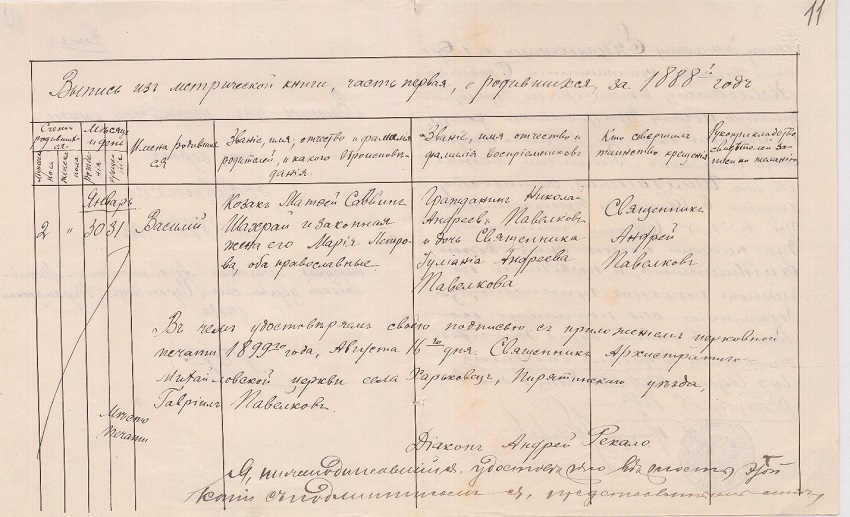 11
Выпись изъ метрической книги, часть первая, о родившихся, за 1888й годъ
Счетъ родившихся
Мужеска пола
Женска пола
Мѣсяцъ и день
рожденія
крещенія
Имена родившихся
Званіе, имя, отчество и фамилія родителей, и какого вѣроисповѣданія
Званіе, имя, отчество и фамилія воспріемниковъ
Кто совершилъ таинство крещенія
Рукоприкладство свидѣтелей записи по желанію
Январь
2 " 30 31
Василій
Козакъ Матѳей Саввинъ
Шахрай и законная
жена его Марія Петро-
ва, оба православные.
Гражданинъ Николай
Андреевъ Павелковъ
и дочь Священника
Іуліанія Андреева
Павелкова
Священникъ
Андрей
Павелковъ
Въ чемъ удостовѣряемъ своею подписью съ приложеніемъ церковной
печати 1899го года, Августа 16го дня. Священникъ Архистратиго-
Михайловской церкви села Харьковецъ, Пирятинскаго уѣзда
Гавріилъ Павелковъ
Мѣсто
печати
Діаконъ Андрей Рекало
Я, нижеподписавшійся, удостовѣряю вѣрность этой
копіи съ подлинникомъ ея, представленнымъ